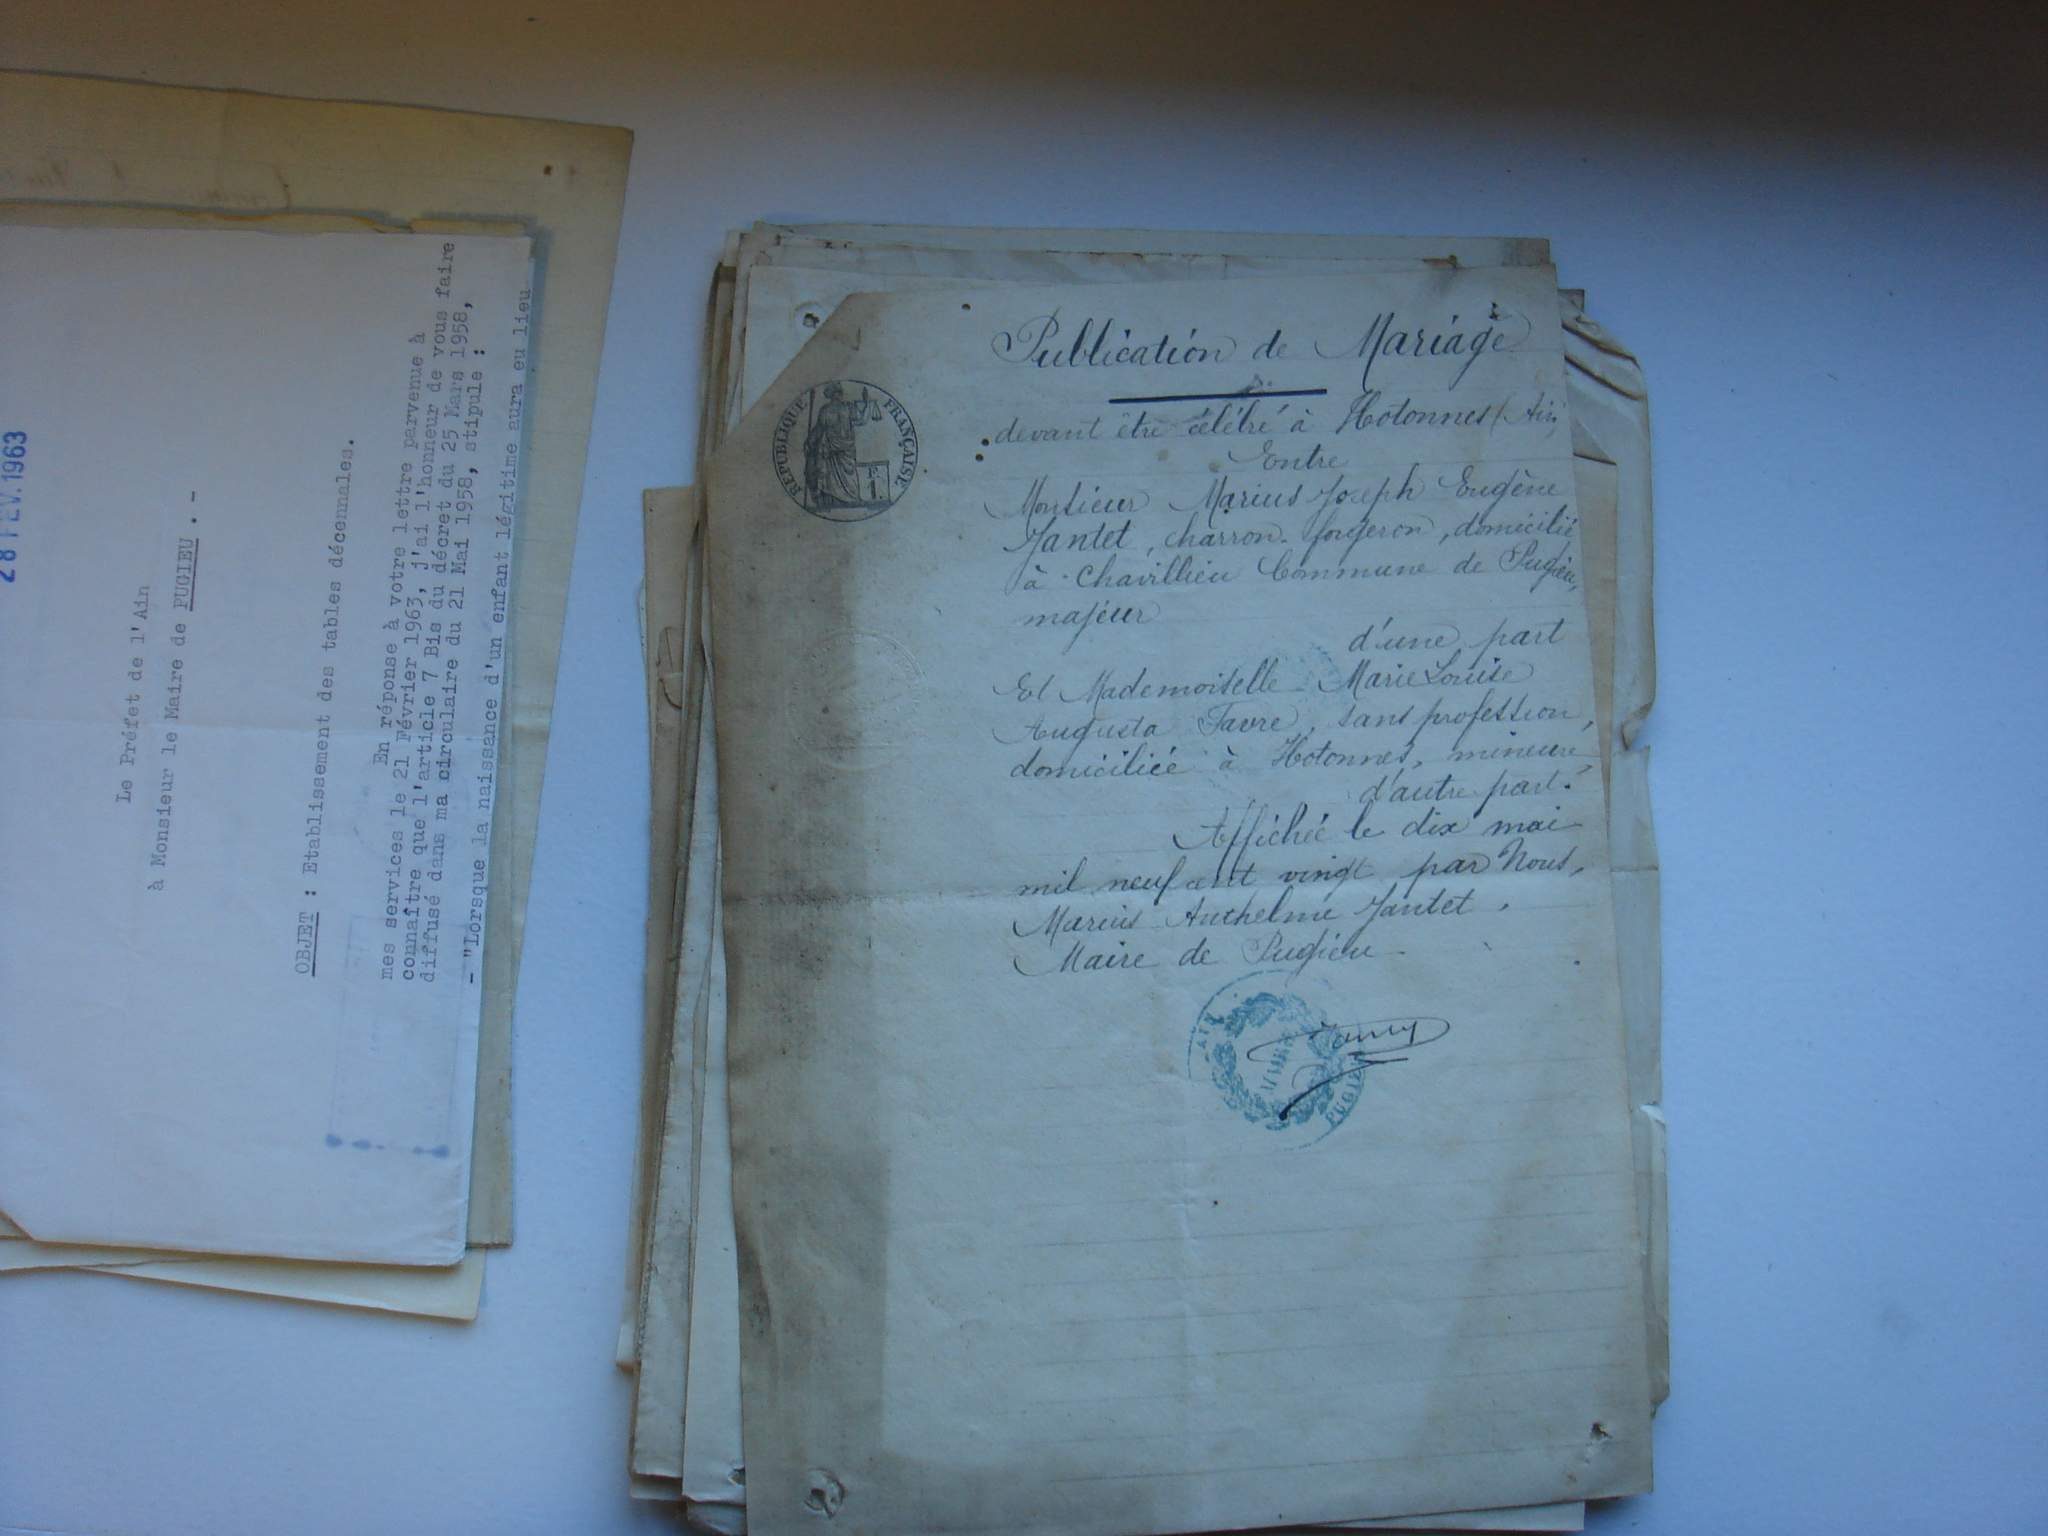 28 FEV. 1963
Le Préfet de l'Ain
à Monsieur le Maire de PUGIEU . -
OBJET : Etablissement des tables décennales.
En réponse à votre lettre parvenue à
mes services le 21 Février 1963, j'ai l'honneur de vous faire
connaître que l'article 7 Bis du décret du 25 Mars 1958,
diffusé dans ma circulaire du 21 Mai 1958, stipule :
- "Lorsque la naissance d'un enfant légitime aura eu lieu
Publication de Mariage
REPUBLIQUE FRANÇAISE
devant être célébré à Hotonnes (Ain)
Entre
Monsieur Marius Joseph Eugène
Jantet, charron-forgeron, domicilié
à Chavillieu Commune de Pugieu,
majeur
d'une part
Et Mademoiselle Marie Louise
Augusta Favre, sans profession,
domiciliée à Hotonnes, mineure,
d'autre part.
Affichée le dix mai
mil neuf cent vingt par Nous,
Marius Anthelme Jantet,
Maire de Pugieu
AIN
MAIRIE
PUGIEU